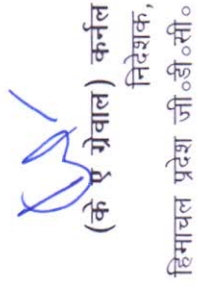 (के ए ग्रेवाल) कर्नल
निदेशक,
हिमाचल प्रदेश जी०डी०सी०